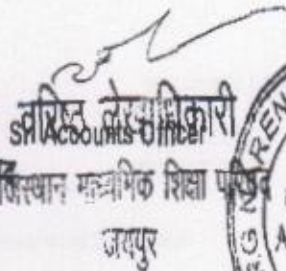 वरिष्ठ लेखाधिकारी
Sr. Accounts Officer
राजस्थान माध्यमिक शिक्षा परिषद
जयपुर